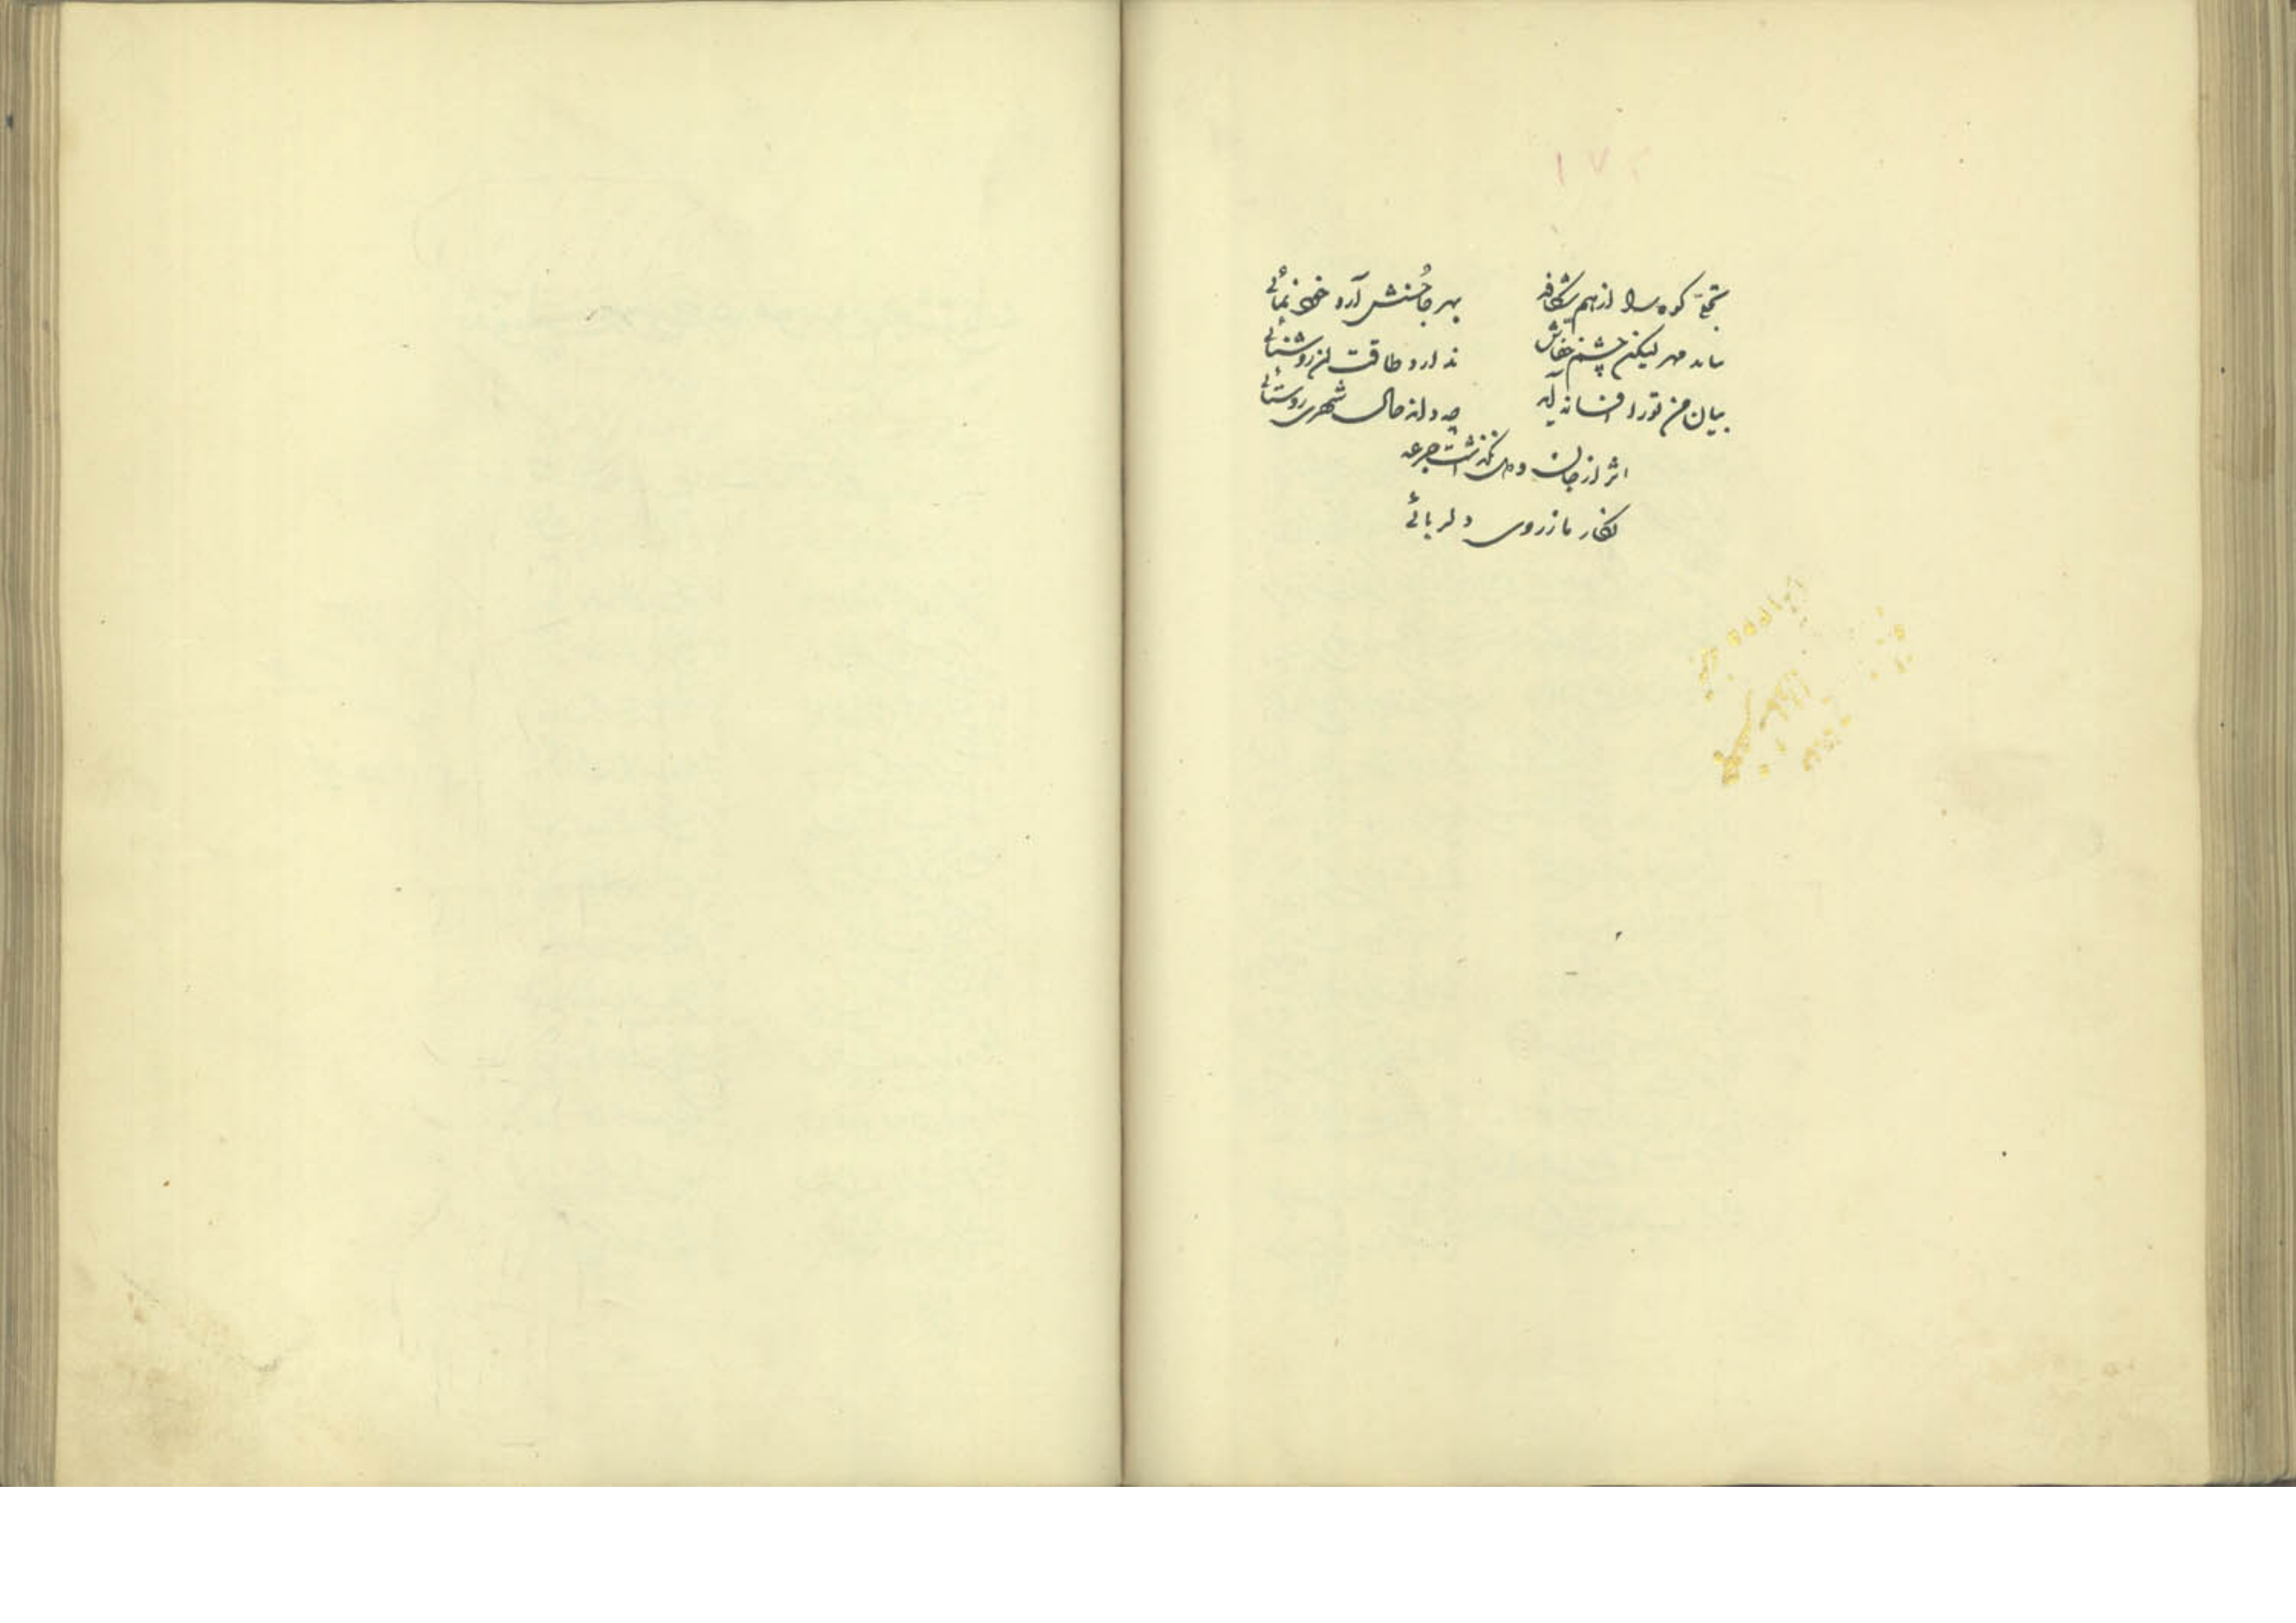 ۱۷۲
تجلّیّ کوه را از هم شکافد بهر جا حُسنش آرد خودنمائی
بتابد مهر لیکن چشم خفاش ندارد طاقت از روشنائی
بیان من تو را افسانه آید چه داند حال شهری روستائی
اثر از جان و دل نگذاشت جرعه
نگار ما ز روی دلربائی